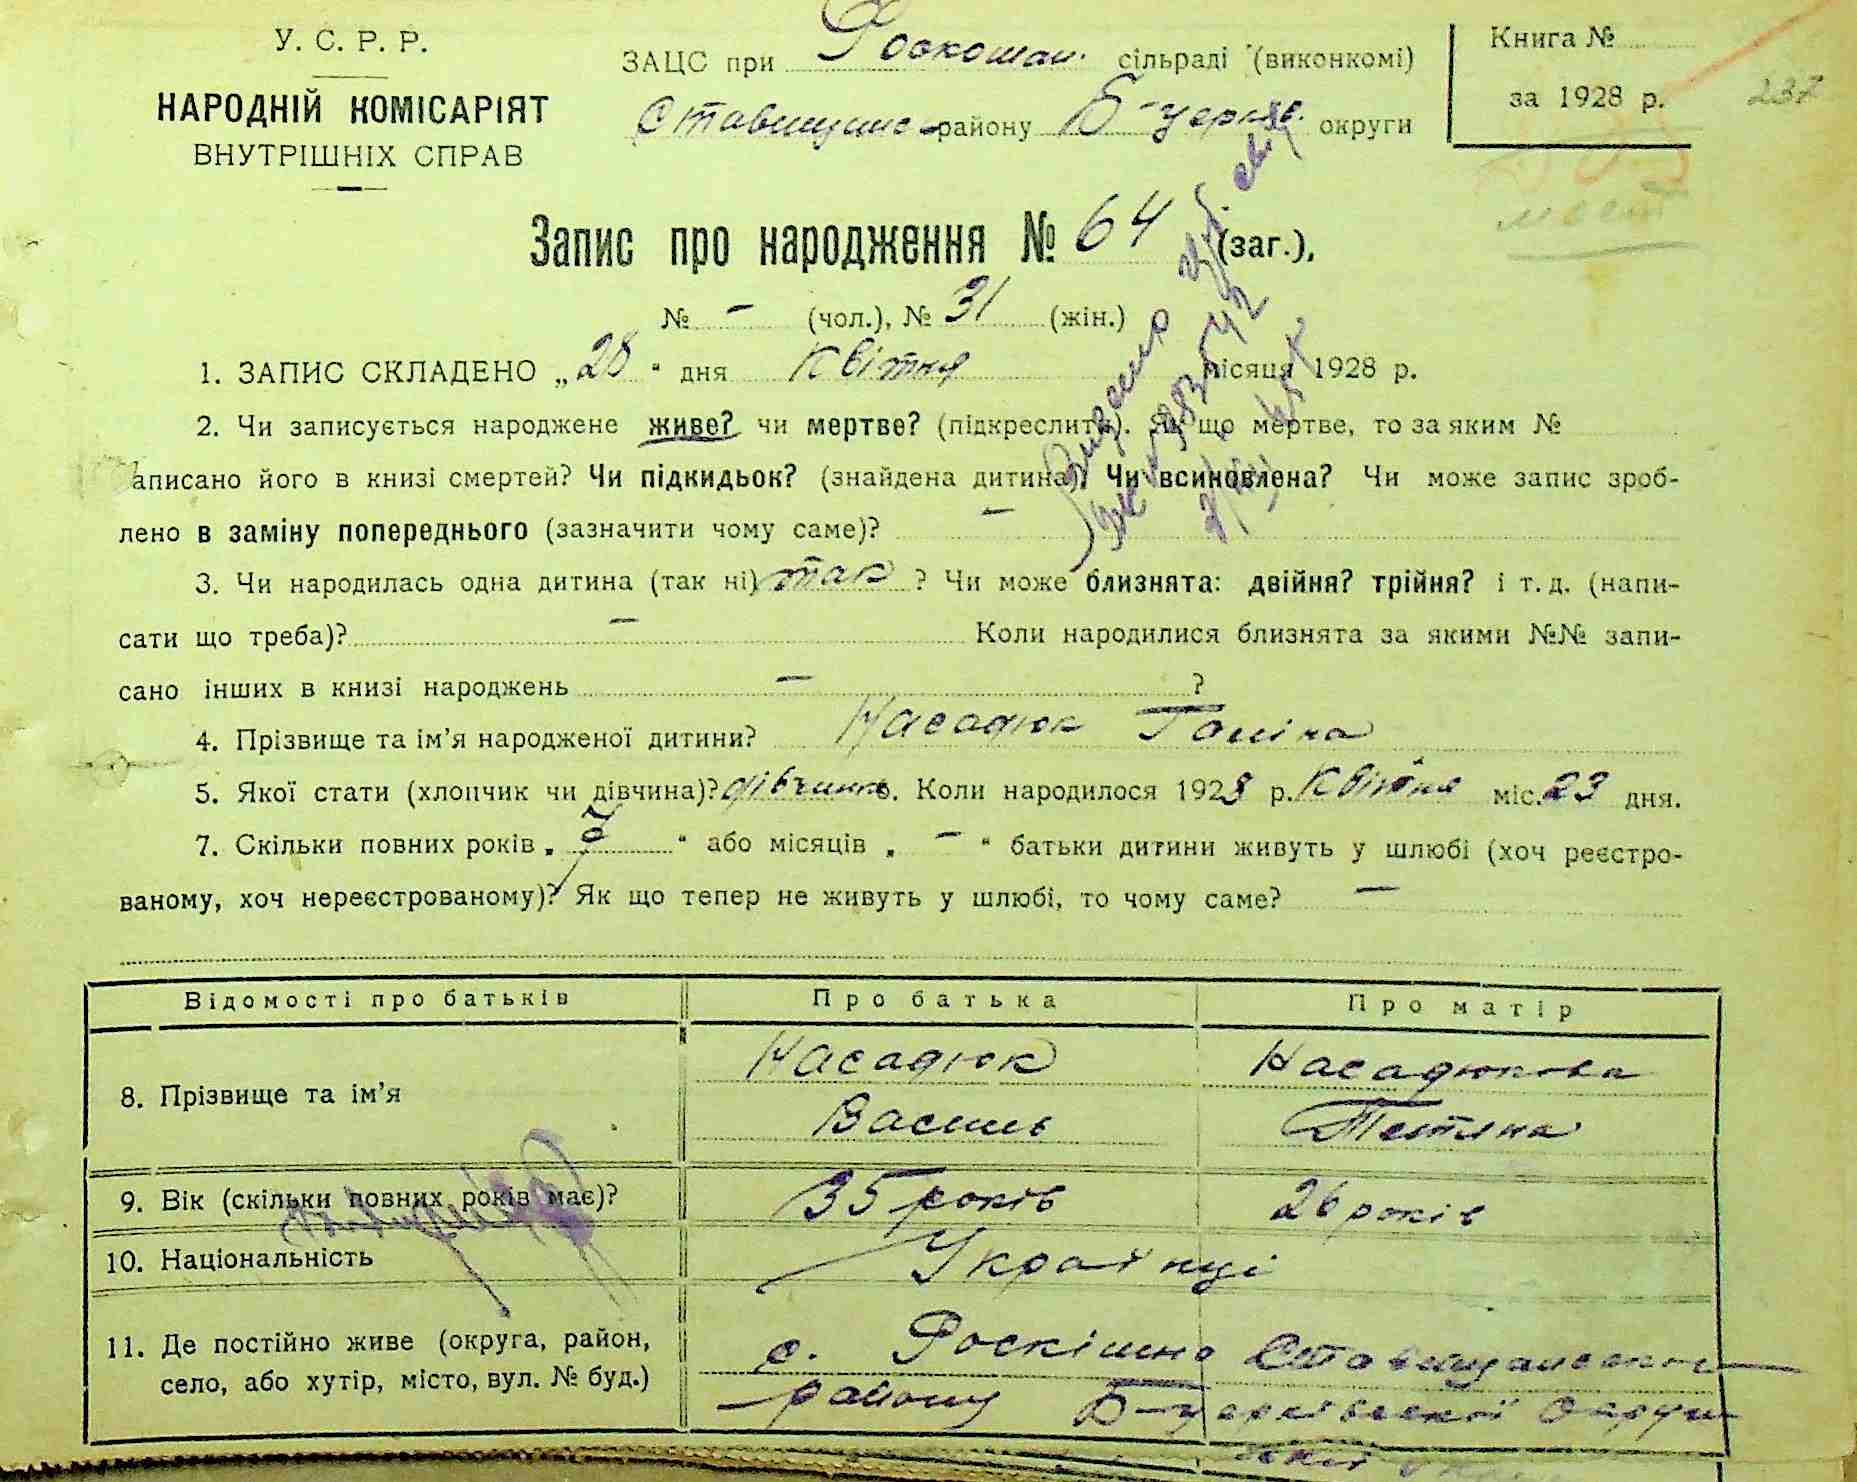 У. С. Р. Р.
НАРОДНІЙ КОМІСАРІЯТ
ВНУТРІШНІХ СПРАВ
ЗАЦС при Роскошан. сільраді (виконкомі)
району Б-церків. округи
Книга №
за 1928 р.
237
Запис про народження № 64 (заг.),
№ – (чол.), № 31 (жін.)
1. ЗАПИС СКЛАДЕНО „28“ дня Квітня місяця 1928 р.
2. Чи записується народжене живе? чи мертве? (підкреслити). Як що мертве, то за яким №
аписано його в книзі смертей? Чи підкидьок? (знайдена дитина)? Чи всиновлена? Чи може запис зроб-
лено в заміну попереднього (зазначити чому саме)? –
3. Чи народилась одна дитина (так ні) так ? Чи може близнята: двійня? трійня? і т. д. (напи-
сати що треба)? – Коли народилися близнята за якими №№ запи-
сано інших в книзі народжень – ?
4. Прізвище та ім’я народженої дитини? Насадюк Галіна
5. Якої стати (хлопчик чи дівчина)? дівчинка 6. Коли народилося 1928 р. Квітня міс. 23 дня.
7. Скільки повних років „ 7 “ або місяців „ – “ батьки дитини живуть у шлюбі (хоч реєстро-
ваному, хоч нереєстрованому)? Як що тепер не живуть у шлюбі, то чому саме? –
Відомості про батьків Про батька Про матір
8. Прізвище та ім’я
Насадюк Насадюкова
Василь Тетяна
9. Вік (скільки повних років має)? 35 років 26 років
10. Національність Українці
11. Де постійно живе (округа, район,
село, або хутір, місто, вул. № буд.)
с. Роскішна Ставищанського
району Б-церківської округи